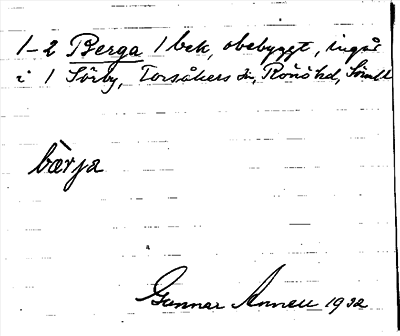 1-2 Berga 1 bek, obebyggt, ingår
i 1 Sörby, Torsåkers sn, Rönö hd, Sörml
bàrja
Gunnar Annell 1932